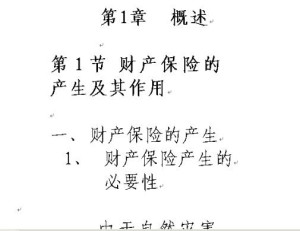 第1章 概述
第1节 财产保险的
产生及其作用
一、财产保险的产生
1、 财产保险产生的
必要性
由于自然灾害